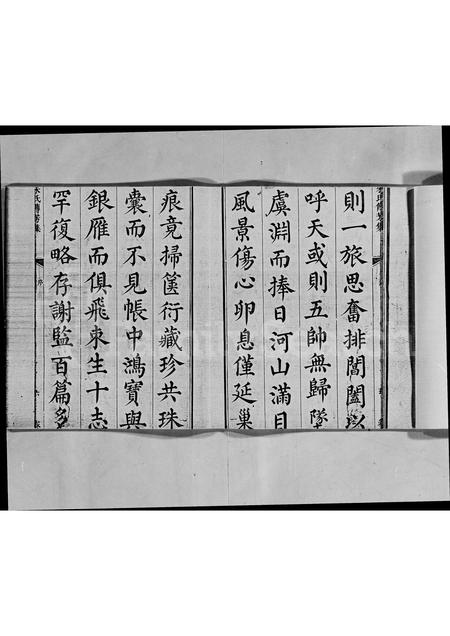 則一旅思奮排閶闔以
呼天或則五帥無歸墜
虞淵而捧日河山滿目
風景傷心卵息僅延巢
痕竟掃篋衍藏珍共珠
囊而不見帳中鴻寶與
銀雁而俱飛束生十志
罕復略存謝監百篇多